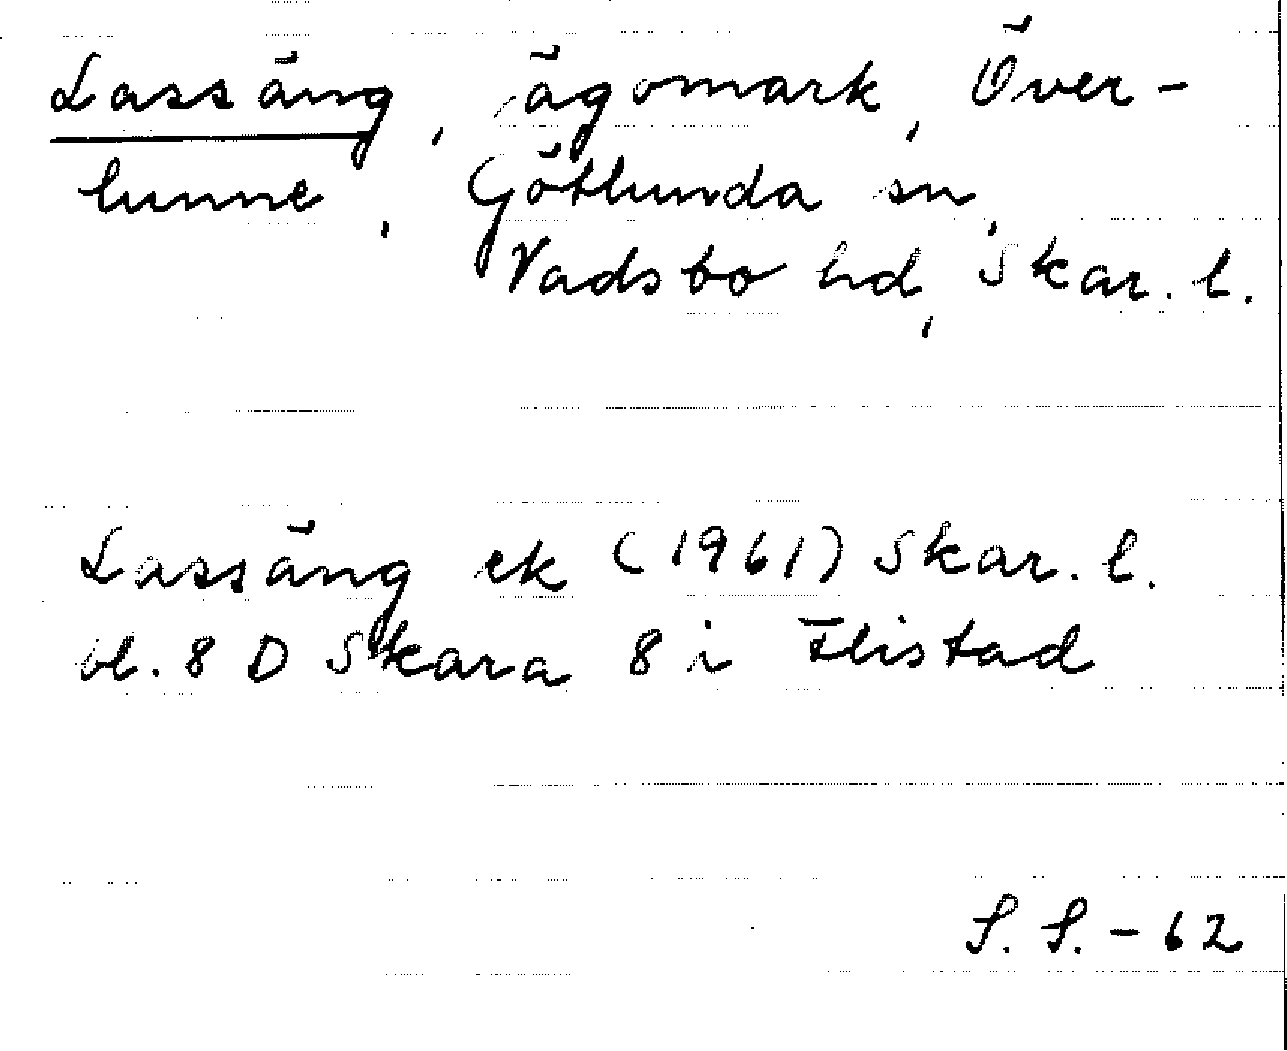 Lassäng, ägomark, Över-
lunne, Götlunda sn,
Vadsbo hd, Skar. l.
Lassäng ek (1961) Skar. l.
bl. 8 D Skara 8 i Flistad
S. S. - 62